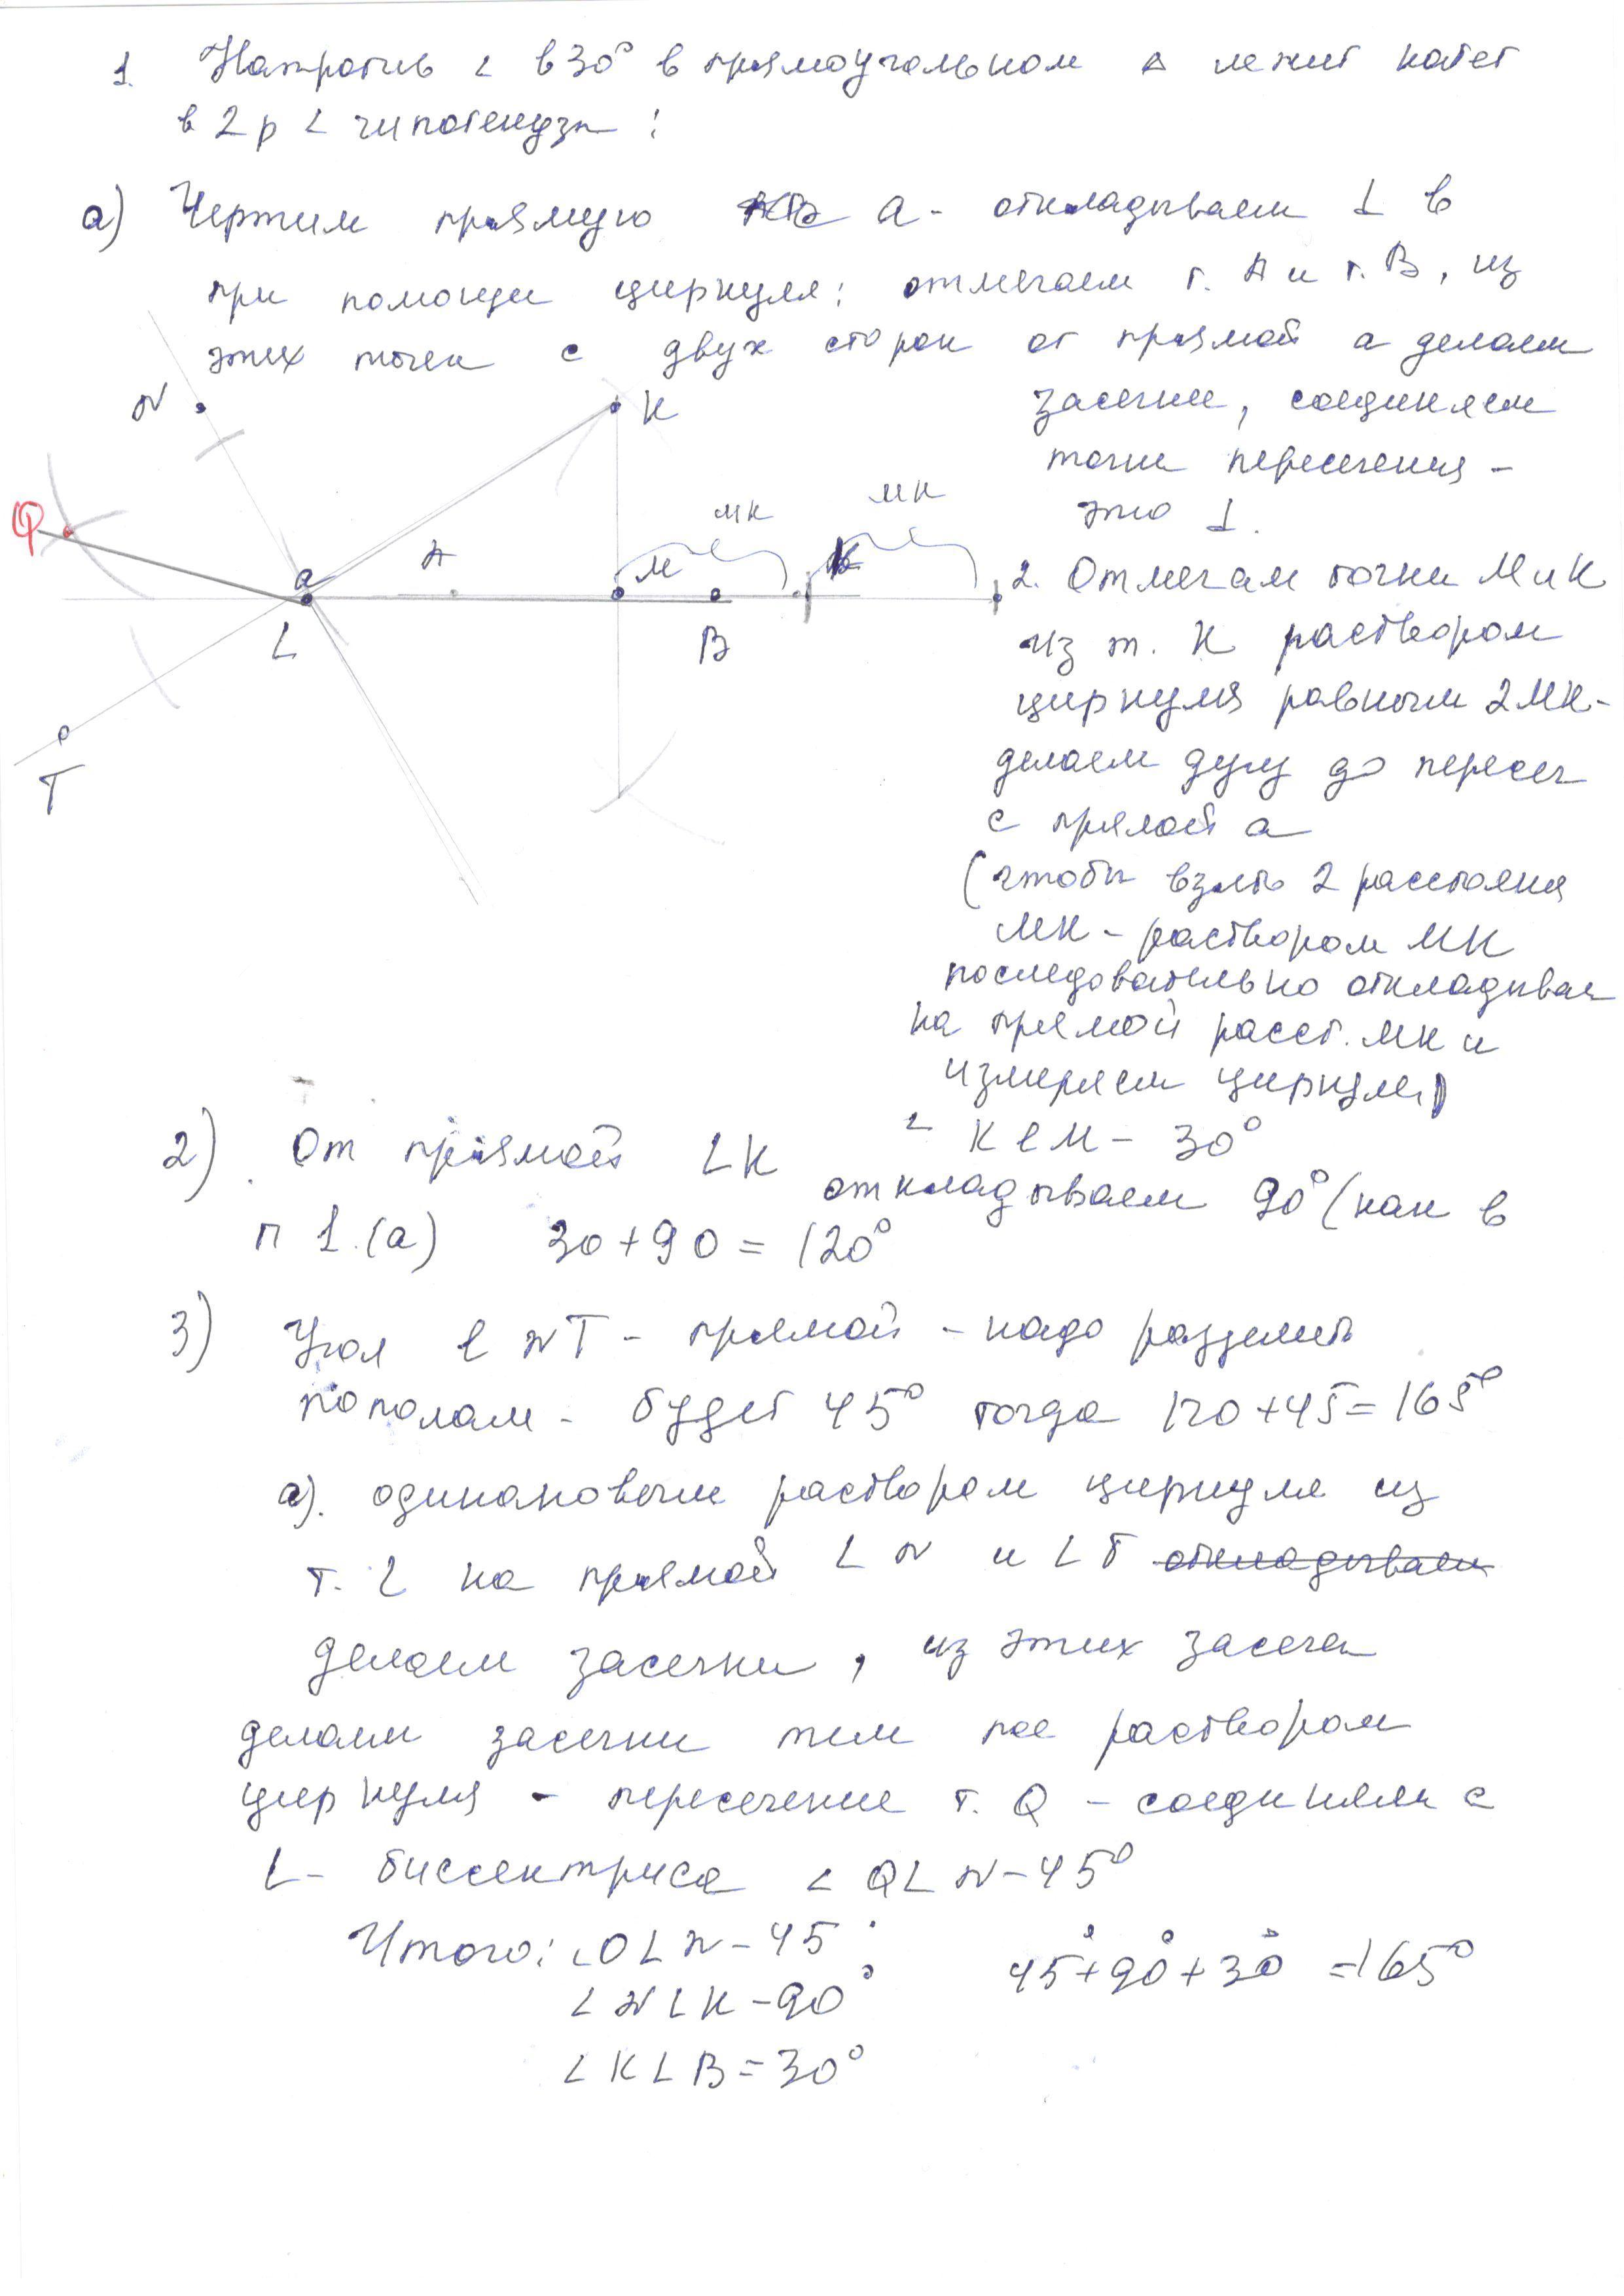 1. Напротив ∠ в 30° в прямоугольном △ лежит катет
в 2 р < гипотенузы :
а) Чертим прямую а - откладываем ⊥ в
при помощи циркуля: отмечаем т. А и т. В, из
этих точек с двух сторон от прямой а делаем
засечки, соединяем
точки пересечения -
это ⊥.
N
K
Q
a
A
M
МК
МК
L
B
T
2. Отмечам точки М и К
из т. К раствором
циркуля равным 2МК -
делаем дугу до пересеч
с прямой а
(чтобы взять 2 расстояния
МК - раствором МК
последовательно откладывая
на прямой расст. МК и
измеряем циркулем)
∠ KLM - 30°
2) От прямой LK
откладываем 90° (как в
п 1.(а) 30+90 = 120°
3) Угол LNT - прямой - надо разделить
пополам - будет 45° тогда 120+45=165°
а). одинаковым раствором циркуля из
т. L на прямой LN и LT откладываем
делаем засечки, из этих засечек
делаем засечки тем же раствором
циркуля - пересечение т. Q - соединяем с
L - биссектриса ∠ QLN - 45°
Итого: ∠QLN - 45°
∠NLK - 90°
∠KLB = 30°
45°+90°+30° = 165°